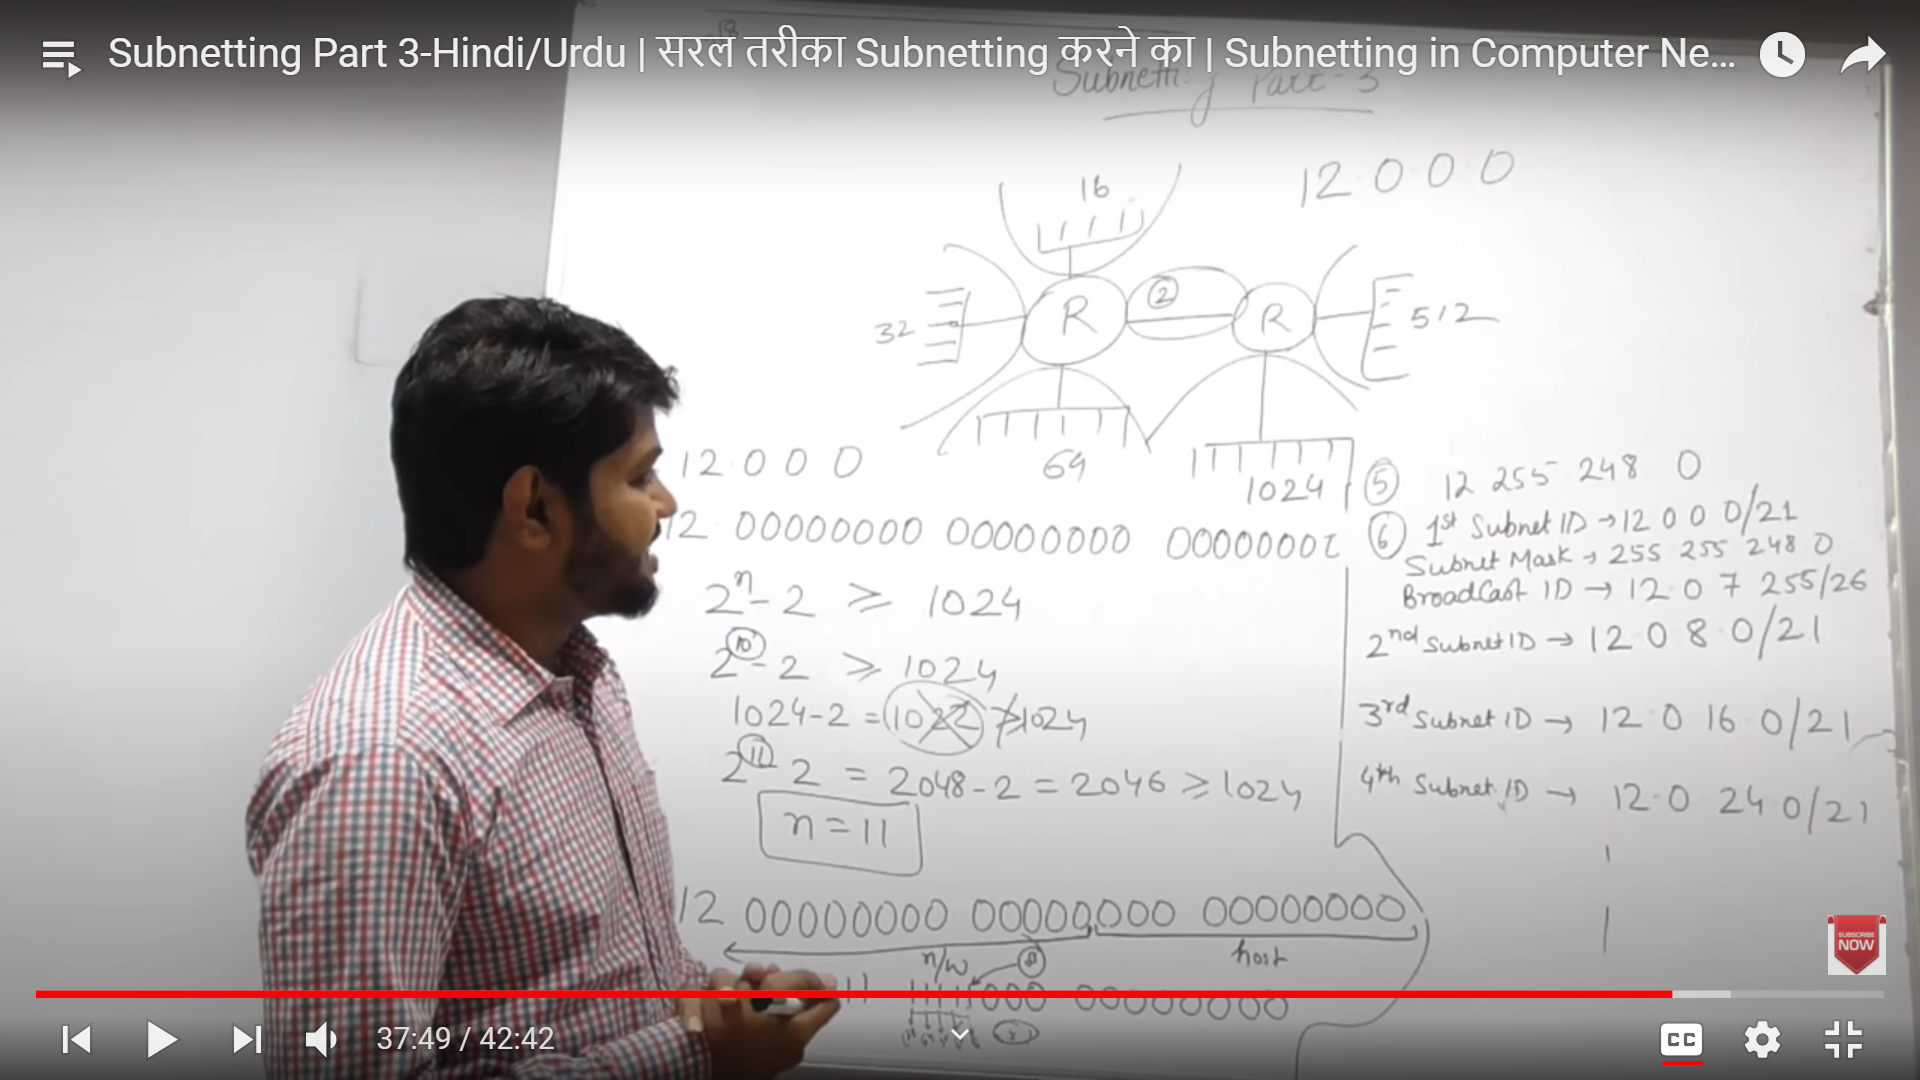 Subnetting Part 3-Hindi/Urdu | सरल तरीका Subnetting करने का | Subnetting in Computer Ne...
Subnetting Part-3
12.0.0.0
16
32
R
2
R
512
64
1024
12.0 0 0
12 00000000 00000000
2ⁿ-2 ≥ 1024
2¹⁰-2 ≥ 1024
1024-2 = 1022 ≱ 1024
2¹¹ 2 = 2048-2 = 2046 ≥ 1024
n = 11
12 00000000 00000000 00000000
n/w 8 host
11 11111000 00000000
5 12 255 248 0
6 1st Subnet ID → 12 0 0 0/21
Subnet Mask → 255 255 248 0
BroadCast ID → 12.0 7 255/26
2nd Subnet ID → 12.0 8.0/21
3rd Subnet ID → 12.0 16 0/21
4th Subnet ID → 12.0 24 0/21
SUBSCRIBE
NOW
37:49 / 42:42
CC